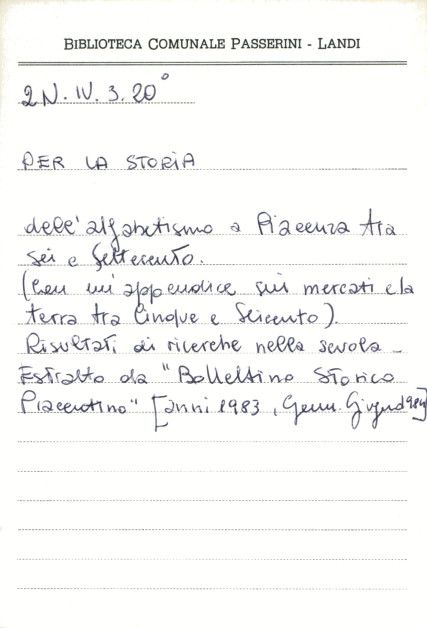 BIBLIOTECA COMUNALE PASSERINI - LANDI
2N. IV. 3. 20°
PER LA STORIA
dell'alfabetismo a Piacenza tra
sei e Settecento.
(Con un'appendice sui mercati e la
terra tra Cinque e Seicento).
Risultati di ricerche nella scuola -
Estratto da "Bollettino Storico
Piacentino" [anni 1983, Genn. Giugno 1984]